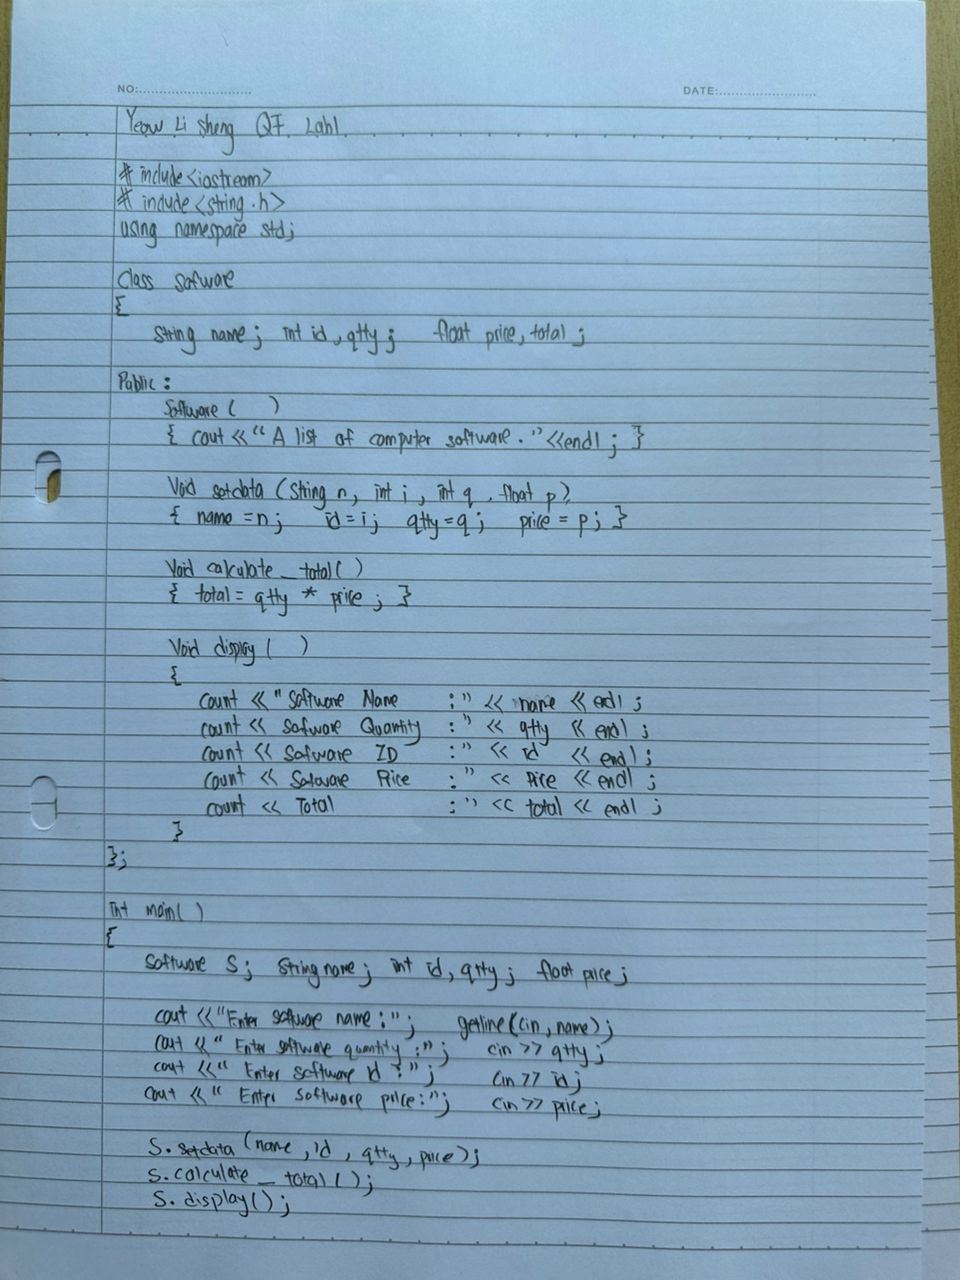 NO:
DATE:
Yeow Li Sheng Q7 Lab1
# include<iostream>
# include<string.h>
using namespace std;
Class Sofware
{
String name; int id, qtty; float price, total;
Public:
Software ( )
{ cout << "A list of computer software." <<endl; }
Void setdata (String n, int i, int q, float p)
{ name =n; id=i; qtty=q; price = p; }
Void calculate_total( )
{ total= qtty * price; }
Void display( )
{
count << "Software Name :" << name << endl;
count << Sofware Quantity :" << qtty << endl;
count << Sofware ID :" << id << endl;
count << Sofware Price :" << Price << endl;
count << Total :" << total << endl;
}
};
Int main( )
{
Software S; String name; int id, qtty; float price;
cout <<"Enter software name:"; getline(cin, name);
cout <<" Enter software quantity:"; cin >> qtty;
cout <<" Enter software id:"; cin >> id;
cout <<" Enter software price:"; cin >> price;
S. setdata (name, id, qtty, price);
S. calculate_total();
S. display();